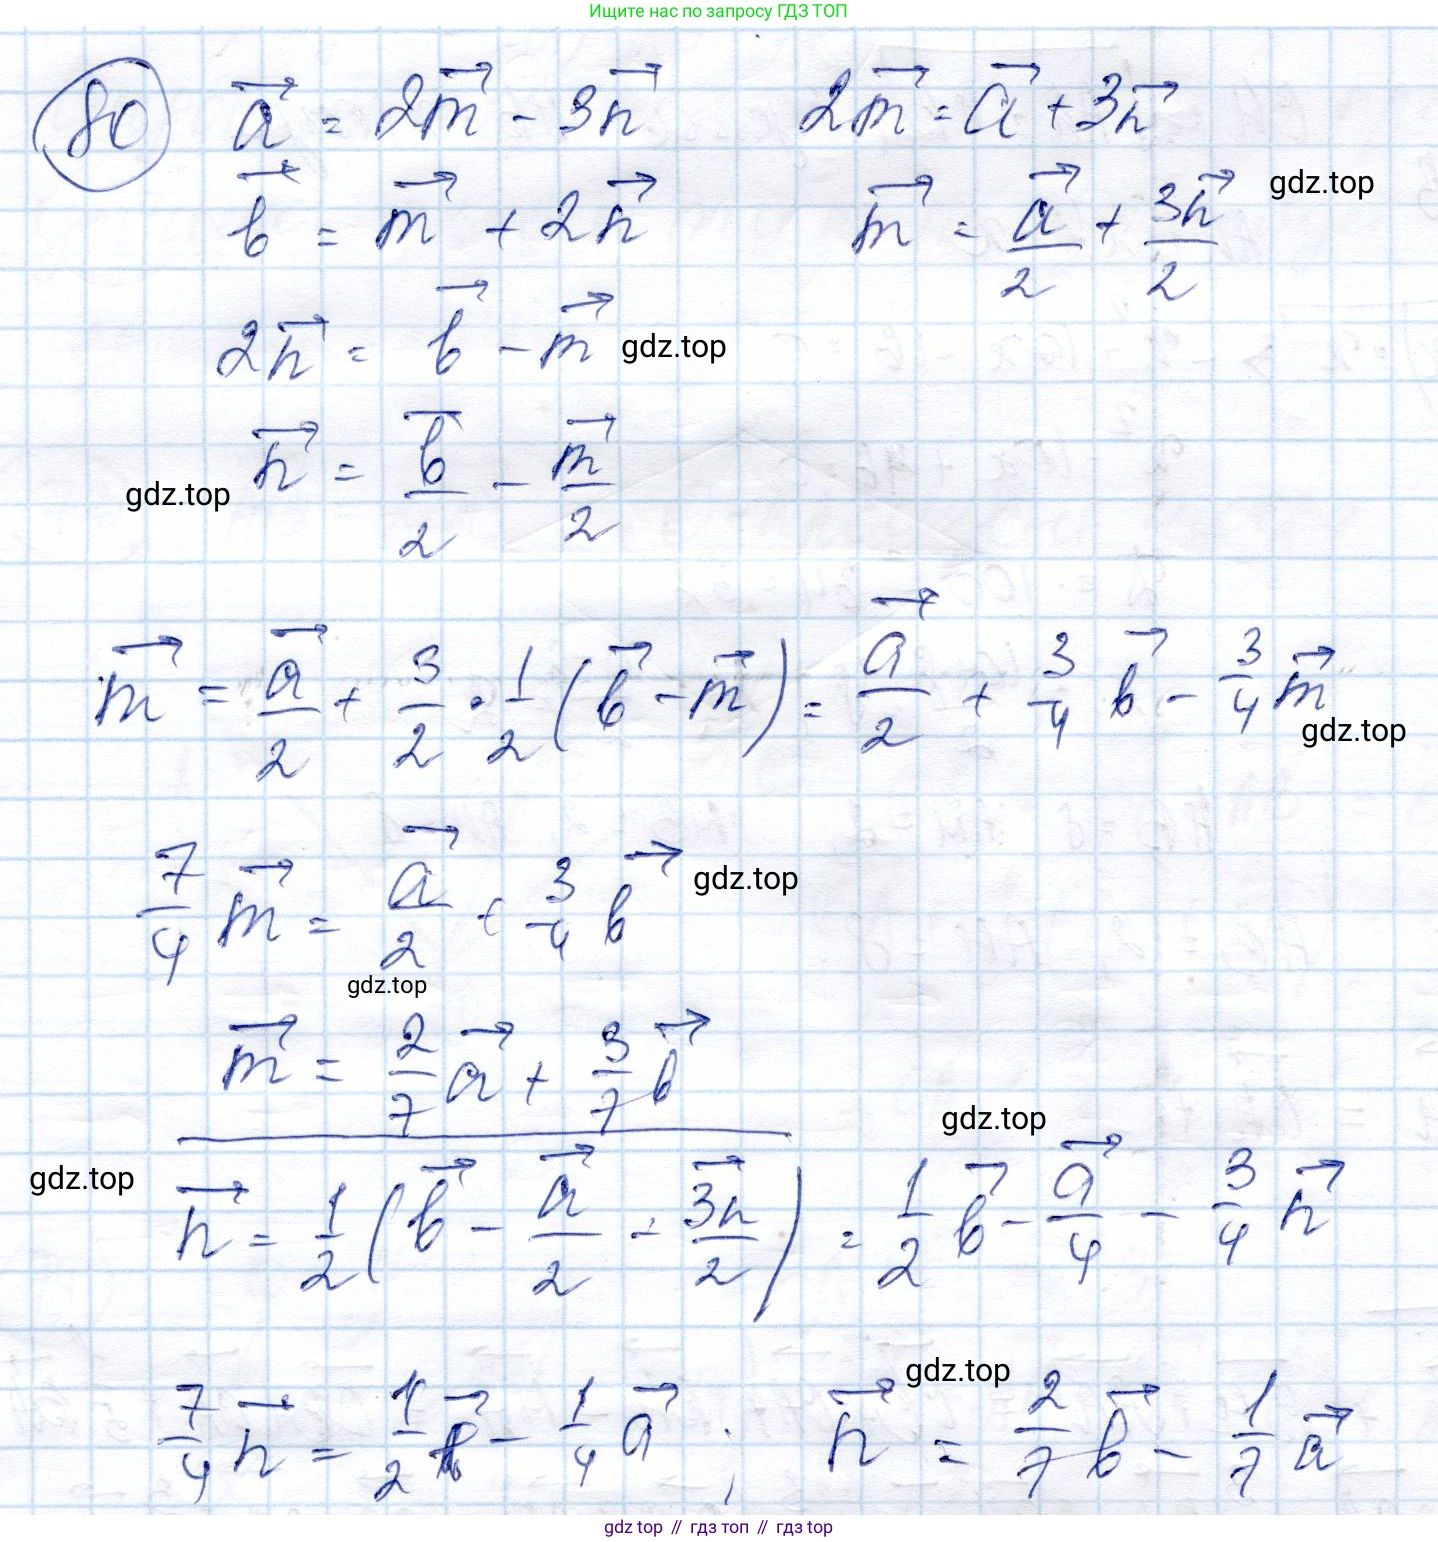 Ищите нас по запросу ГДЗ ТОП
80 a⃗ = 2m⃗ - 3n⃗ 2m⃗ = a⃗ + 3n⃗
b⃗ = m⃗ + 2n⃗ m⃗ = a⃗/2 + 3n⃗/2 gdz.top
2n⃗ = b⃗ - m⃗ gdz.top
gdz.top n⃗ = b⃗/2 - m⃗/2
m⃗ = a⃗/2 + 3/2 · 1/2 (b⃗ - m⃗) = a⃗/2 + 3/4 b⃗ - 3/4 m⃗ gdz.top
7/4 m⃗ = a⃗/2 + 3/4 b⃗ gdz.top
gdz.top
m⃗ = 2/7 a⃗ + 3/7 b⃗
gdz.top
gdz.top n⃗ = 1/2 (b⃗ - a⃗/2 - 3n⃗/2) = 1/2 b⃗ - a⃗/4 - 3/4 n⃗
gdz.top
7/4 n⃗ = 1/2 b⃗ - 1/4 a⃗ ; n⃗ = 2/7 b⃗ - 1/7 a⃗
gdz top // гдз топ // gdz top